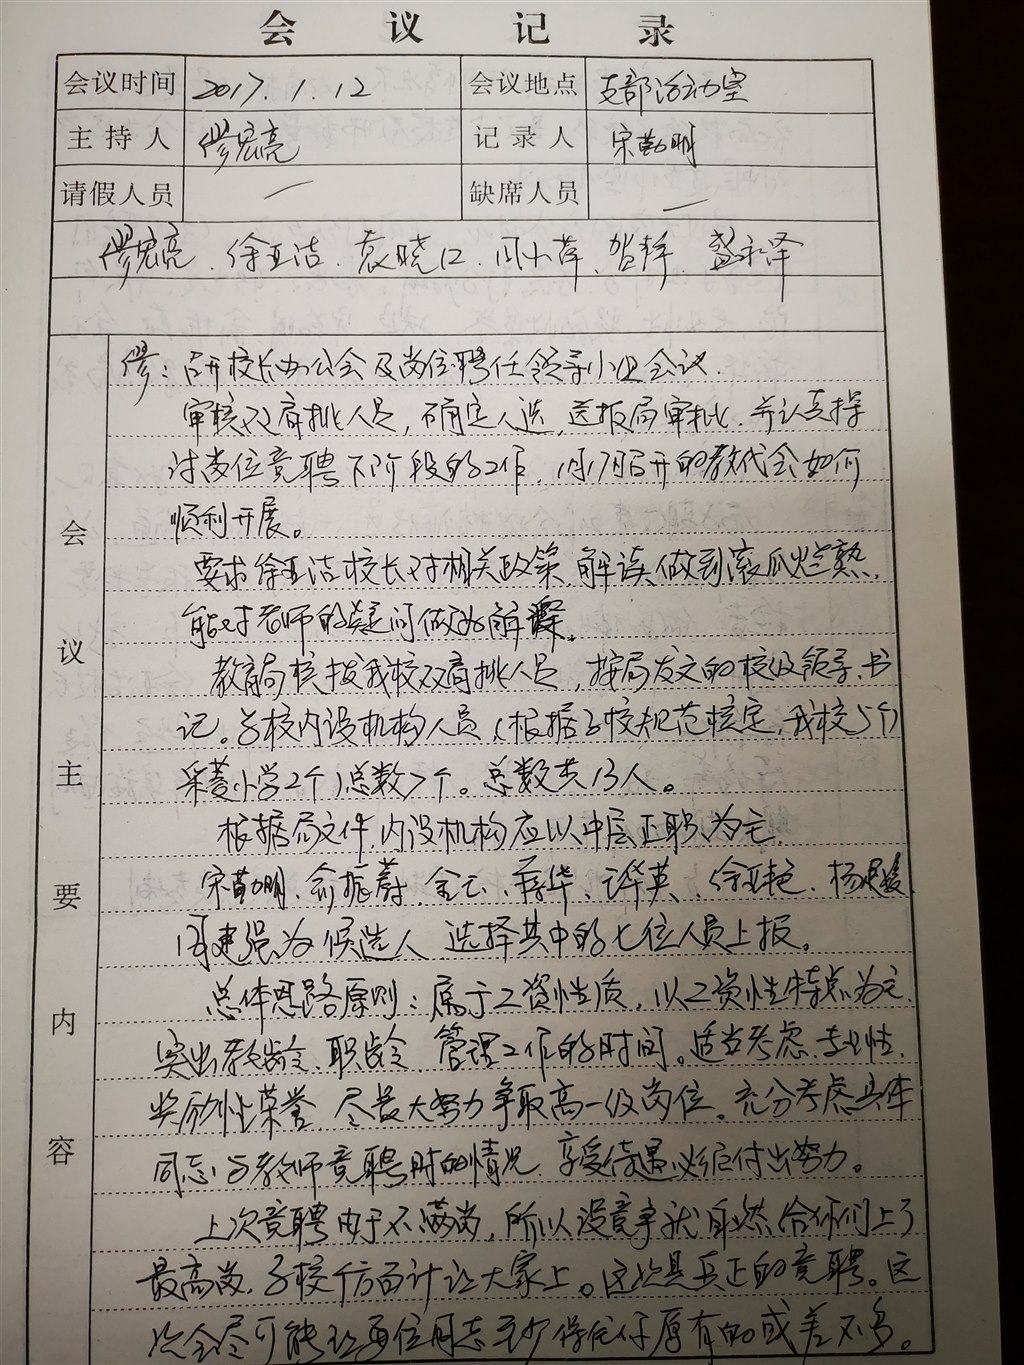 会议记录
会议时间 2017.1.12 会议地点 支部活动室
主持人 缪宏亮 记录人 宋勤明
请假人员 — 缺席人员 —
缪宏亮、徐亚洁、袁晓江、周小萍、贺静、盛永泽
会议主要内容
缪:召开校长办公会及岗位聘任领导小组会议.
审核双肩挑人员,确定人选,送报局审批.并认真探
讨岗位竞聘下阶段的工作,1月17日召开的教代会如何
顺利开展。
要求徐亚洁校长对相关政策 解读做到滚瓜烂熟,
能对老师的疑问做出解释。
教育局核拨我校双肩挑人员,按局发文的校级领导、书
记。与校内设机构人员(根据学校规范核定,我校5个
采菱小学2个)总数7个。总数共13人。
根据局文件,内设机构应以中层正职为主.
宋勤明、俞振蔚、金云、蒋华、许华英、徐亚艳、杨
周建强为候选人 选择其中的七位人员上报。
总体思路原则:属于工资性质,以工资性特点为主.
突出教龄、职龄 管理工作的时间。适当考虑专业性.
奖励性荣誉 尽最大努力争取高一级岗位。充分考虑具体
同志与教师竞聘时的情况,享受待遇必须付出努力。
上次竞聘由于不满岗,所以没竞争就自然给你们上了
最高岗,学校千方百计让大家上。这次是真正的竞聘。这
次会尽可能让每位同志至少保住你原有的或差不多。